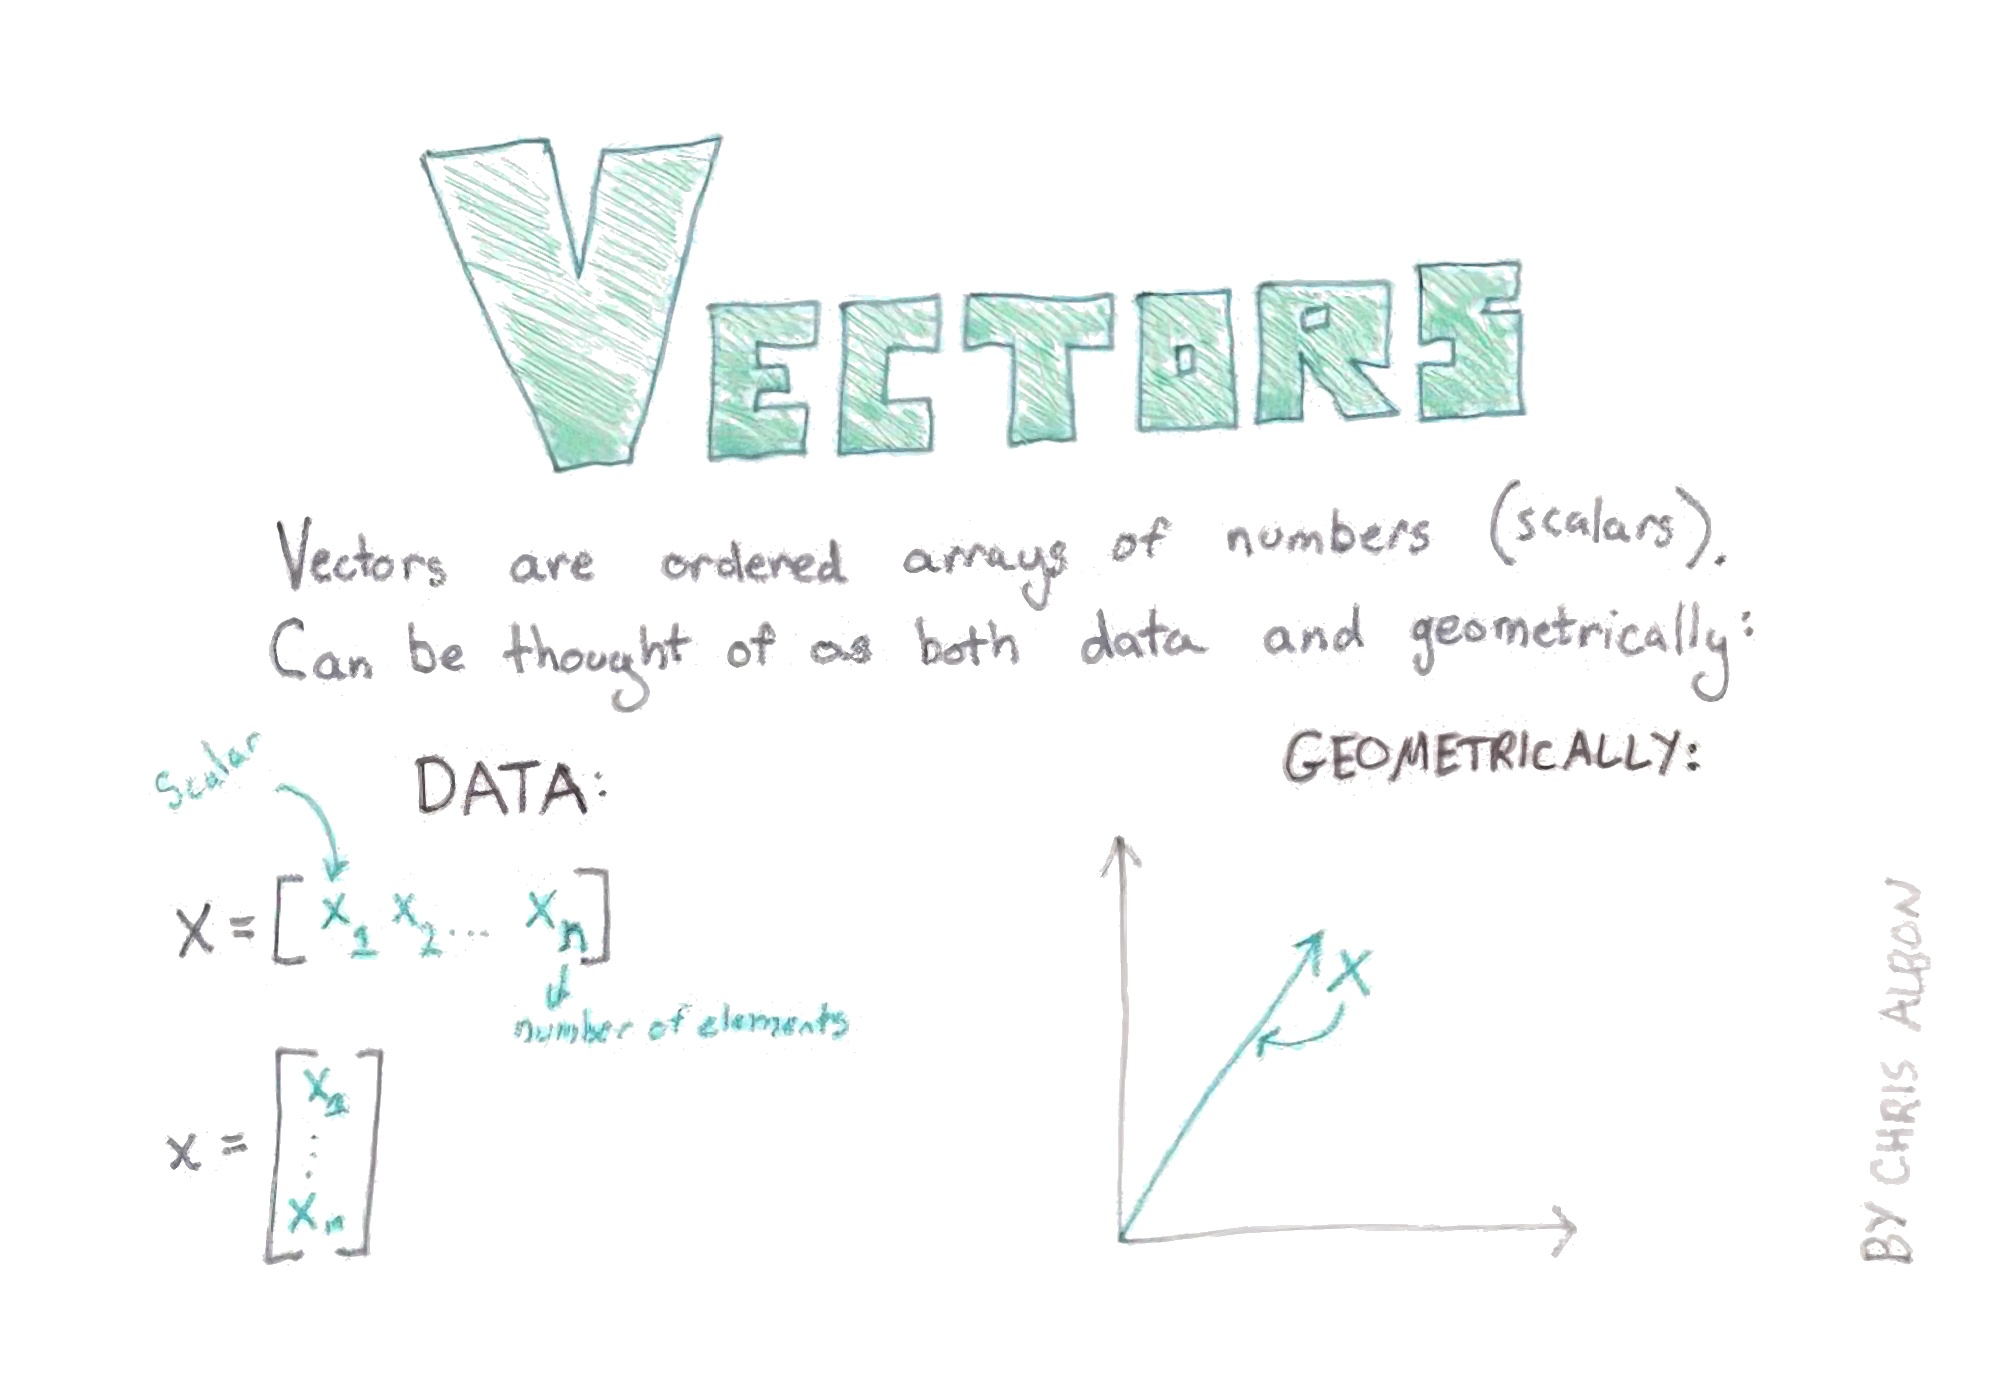 VECTORS
Vectors are ordered arrays of numbers (scalars).
Can be thought of as both data and geometrically:
Scalar
DATA:
X = [x₁ x₂ ... xₙ]
number of elements
x = [x₁
⋮
xₙ]
GEOMETRICALLY:
X
BY CHRIS ALBON